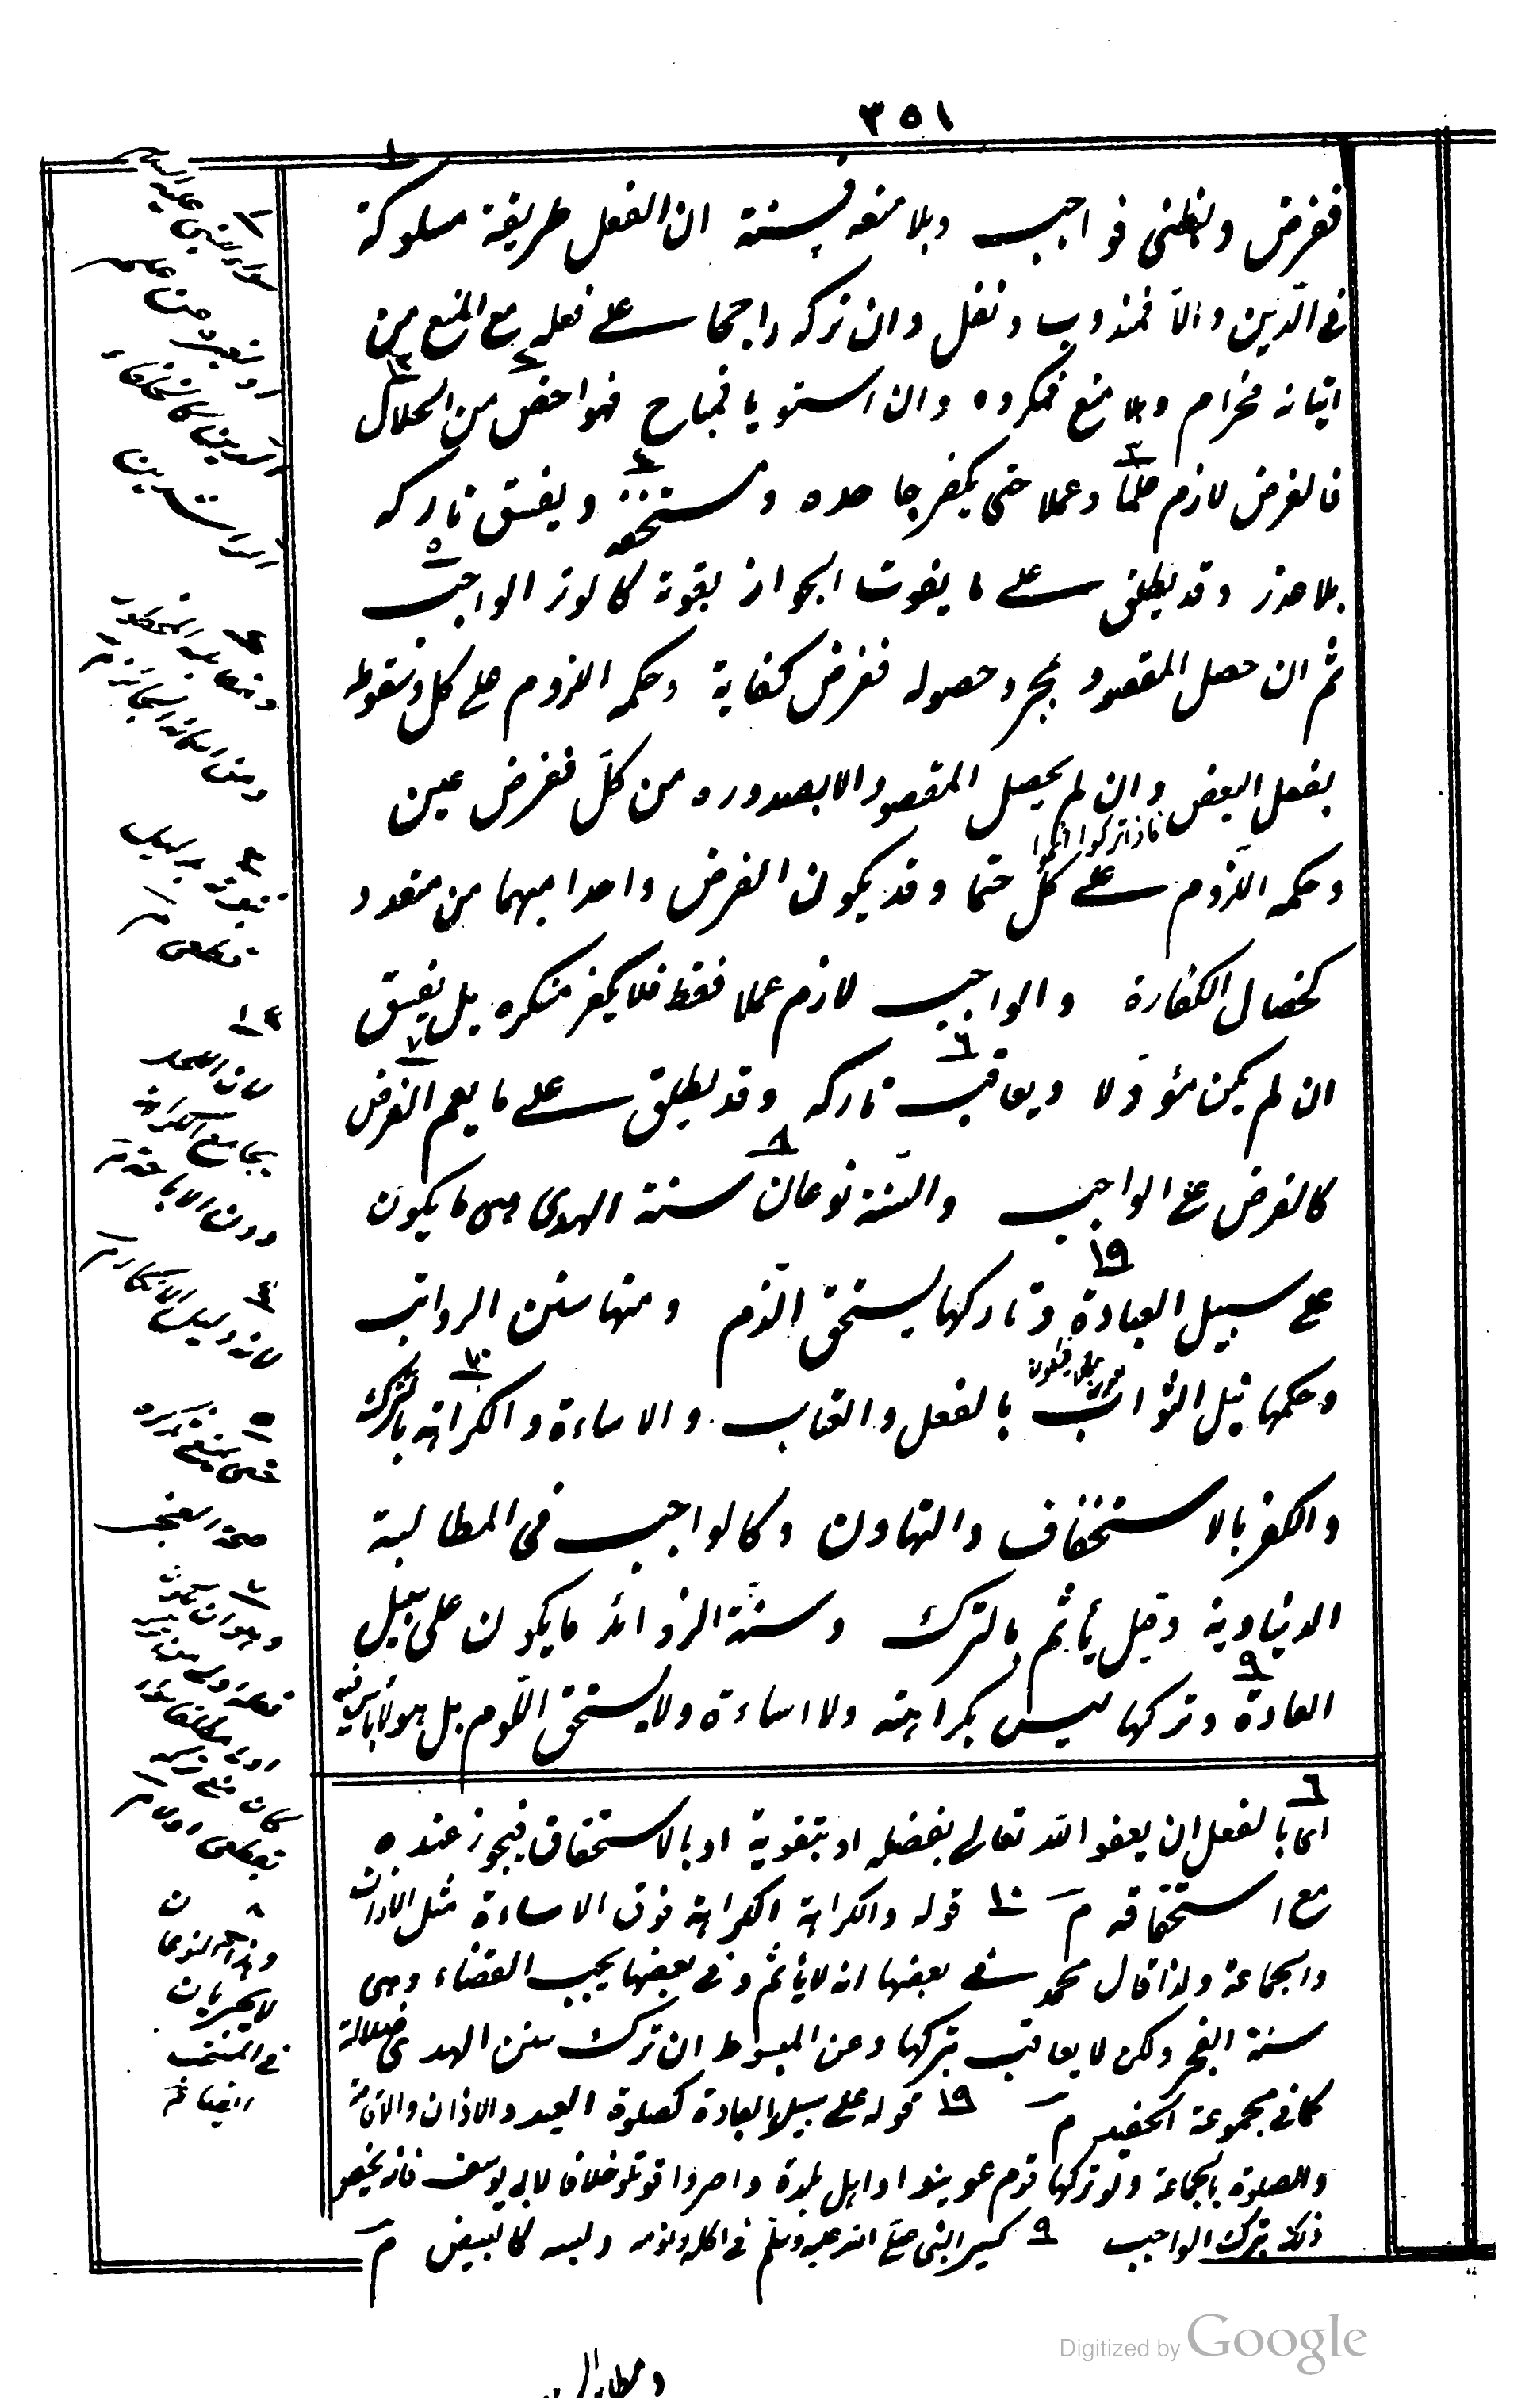 ٣٥١
ففرض وبظنى فواجب وبلا منعه فسنة ان الفعل طريقة مسلوكة
فى الدين والا فمندوب ونفل وان تركه راجحا على فعله مع المنع من
اتيانه فحرام وبلا منع فمكروه وان استويا فمباح فهو اخص من الحلال
فالفرض لازم علما وعملا حتى يكفر جاحده ومستخفه ويفسق تاركه
بلا عذر وقد يطلق على ما يفوت الجواز بفوته كالوتر الواجب
ثم ان حصل المقصود بمجرد حصوله ففرض كفاية وحكمه اللزوم على كل وسقوطه
بفعل البعض وان لم يحصل المقصود الا بصدوره من كل ففرض عين
فاذا تركوا اثموا
وحكمه اللزوم على كل حتما وقد يكون الفرض واحدا مبهما من متعدد
كخصال الكفارة والواجب لازم عملا فقط فلا يكفر منكره بل يفسق
ان لم يكن مؤولا ويعاقب تاركه وقد يطلق على ما يعم الفرض
كالفرض على الواجب والسنة نوعان سنة الهدى وهى ما يكون
على سبيل العبادة وتاركها يستحق الذم ومنها سنن الرواتب
وحكمها نيل الثواب بالفعل والعتاب والاساءة والكراهة بالترك
والكفر بالاستخفاف والتهاون وكالواجب فى المطالبة
الدنياوية وقيل يأثم بالترك وسنة الزوائد ما يكون على سبيل
العادة وتركها ليس بكراهة ولا اساءة ولا يستحق اللوم بل هو لا بأس فيه
٦ اى بالفعل ان يعفو الله تعالى بفضله او بتقوية او بالاستحقاق فيجوز عنده
مع استحقاقه م ١٠ قوله والكراهة الكراهة فوق الاساءة مثل الاذان
والجماعة ولذا قال محمد فى بعضها انه لا يأثم وفى بعضها يجب القضاء وهى
سنة الفجر ولكن لا يعاقب بتركها وعن المبسوط ان ترك سنن الهدى ضلالة
كما فى مجموعة الحفيد م ١٩ قوله على سبيل العبادة كصلوة العيد والاذان والاقامة
والصلوة بالجماعة ولو تركها قوم عوتبوا او اهل بلدة واصروا قوتلوا خلافا لابى يوسف فانه يخص
ذلك بترك الواجب ٩ كسير النبى صلى الله عليه وسلم فى اكله ونومه ولبسه كالبيض م
١ سواء النبى عليه السلام
او غيره من علماء
الدين كالخلفاء
الراشدين
٣ ثبوته بدليل
قطعى م
٢ لان الحلال
يجامع الكراهة
دون الاباحة م
٤ لانه دليل الانكار م
٥ حتى يمنع تذكره
صحة الفجر
٨ وهذان النوعان
لا يجريان
فى المستحب
ايضا م
Digitized by Google